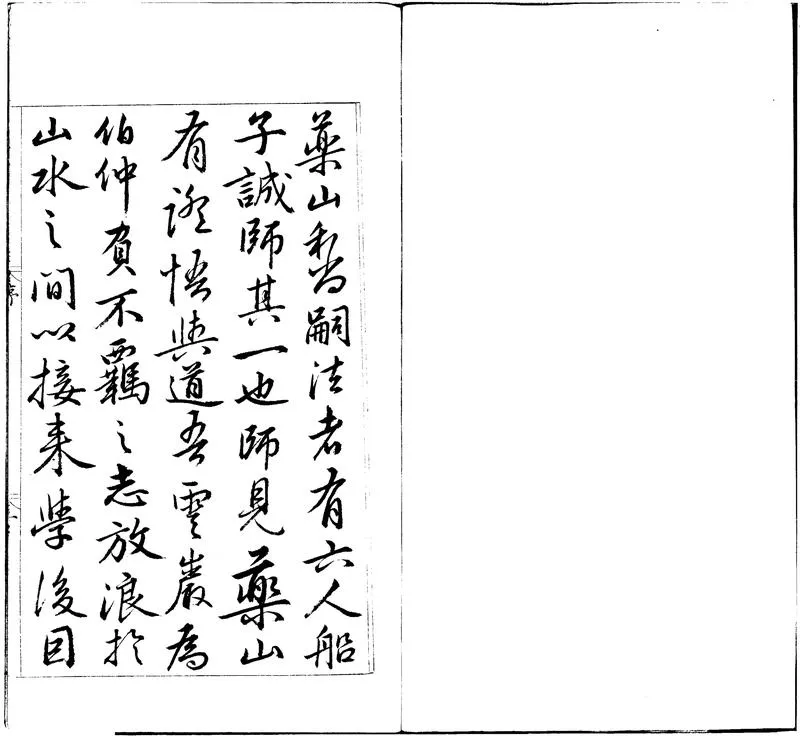 藥山番嗣法者有六人船
子誠師其一也師見藥山
有證悟與道吾雲巖為
伯仲負不羈之志放浪於
山水之間以接來學後因
序